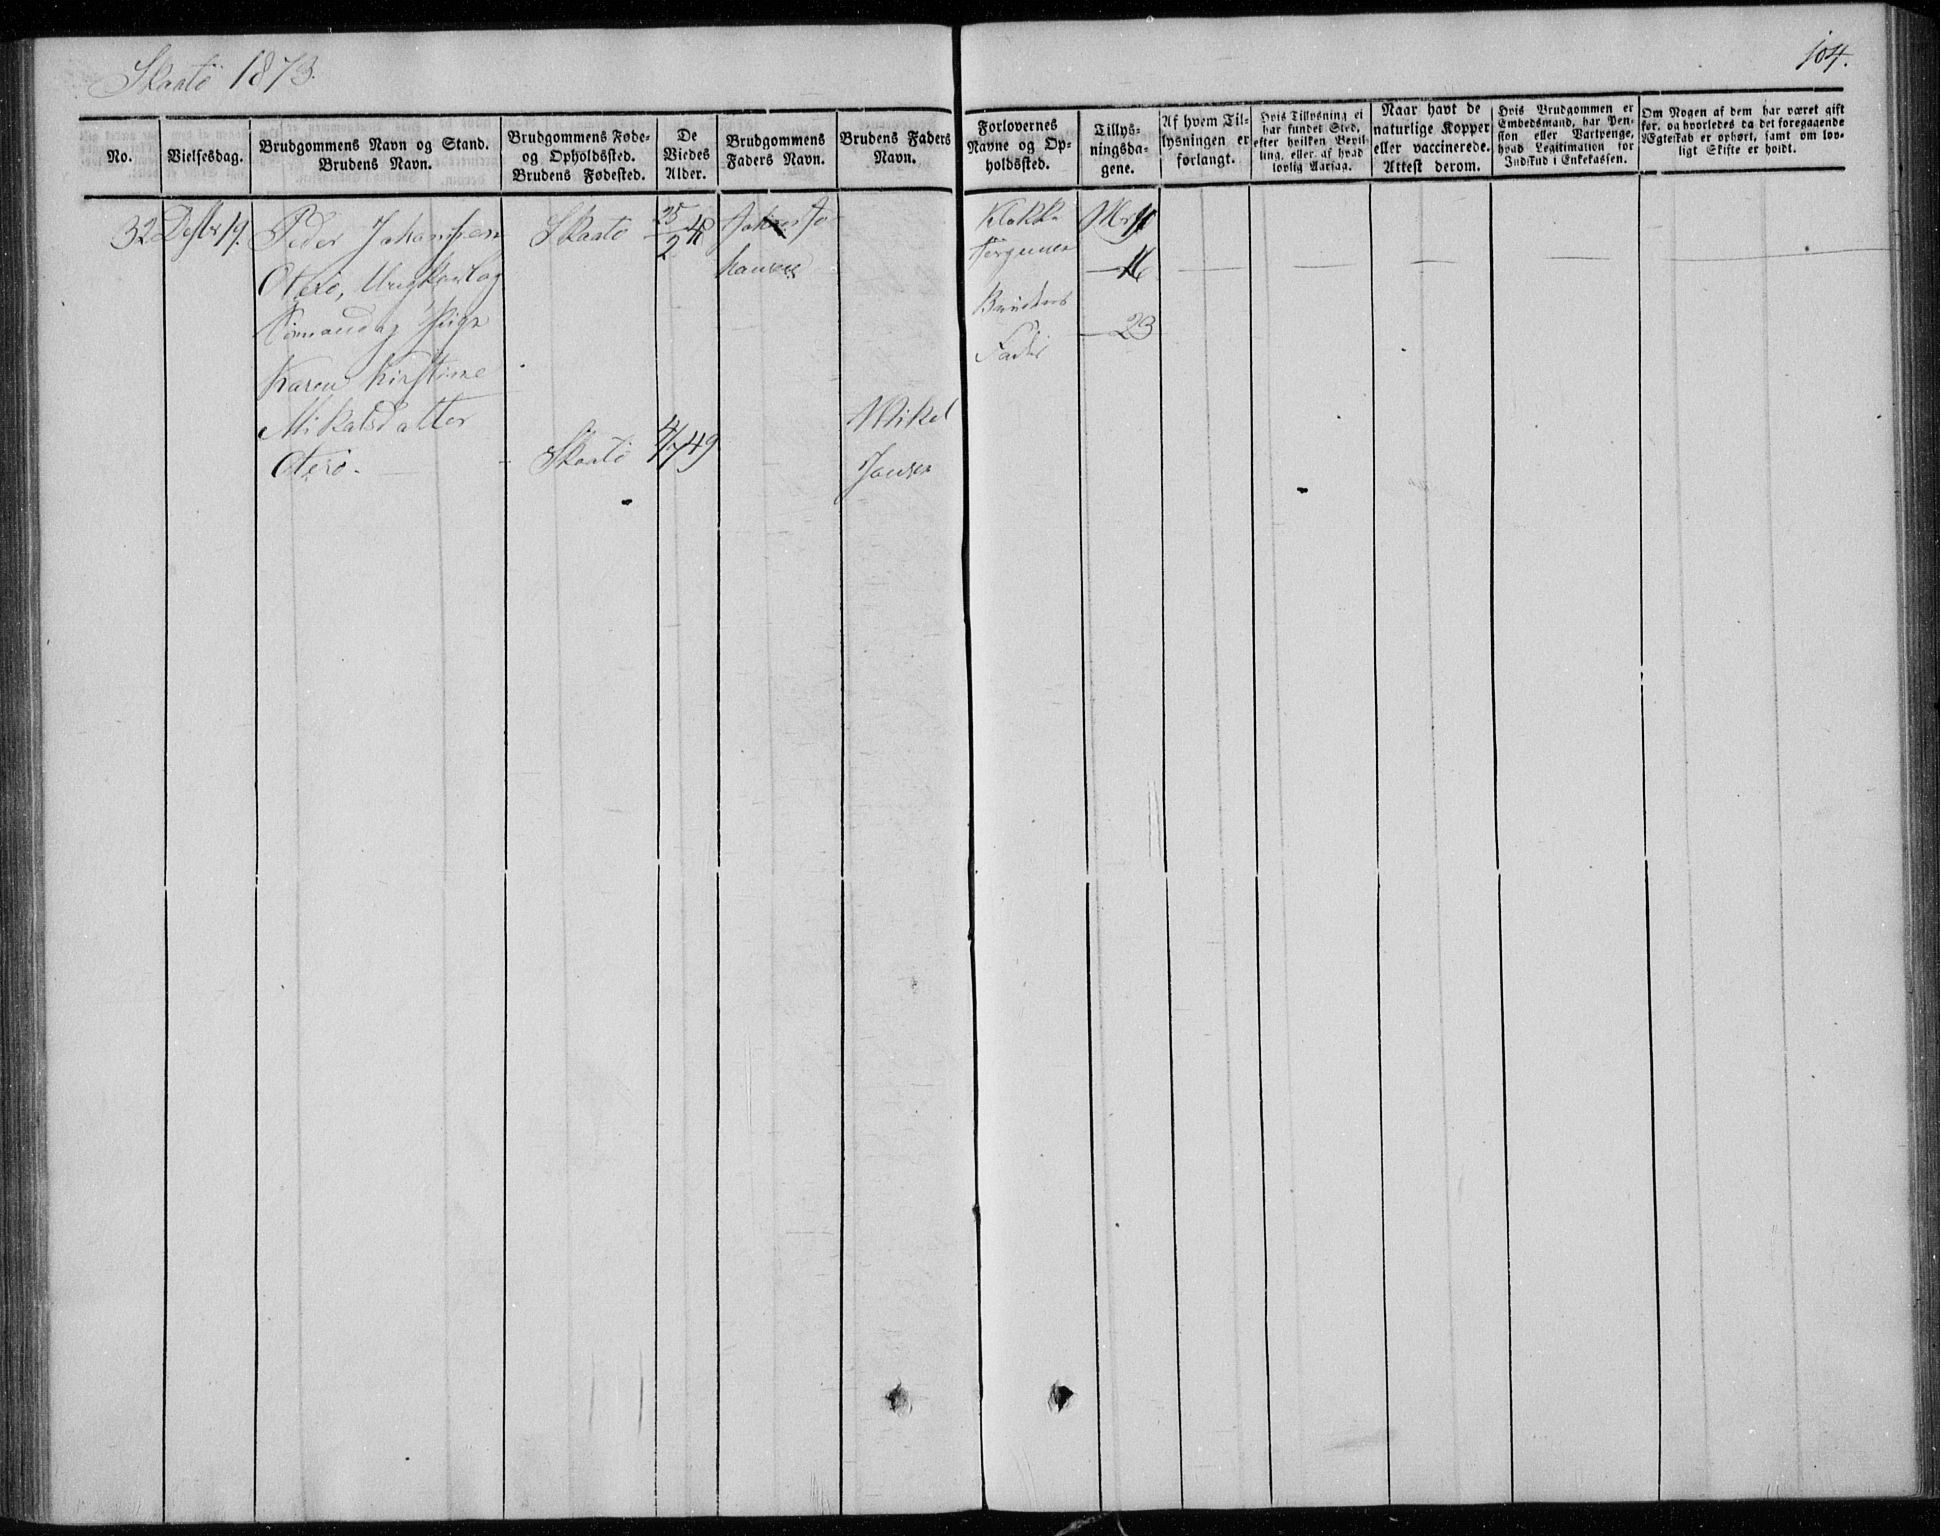 Skaatö 1873.
104.
No.
Vielsesdag.
Brudgommens Navn og Stand.
Brudens Navn.
Brudgommens Føde-
og Opholdssted.
Brudens Fødested.
De
Viedes
Alder.
Brudgommens
Faders Navn.
Brudens Faders
Navn.
Forlovernes
Navne og Op-
holdssted.
Tillys-
ningsda-
gene.
Af hvem Til-
lysningen er
forlangt.
Hvis Tillysning ei
har fundet Sted,
efter hvilken Bevil-
ling, eller af hvad
lovlig Aarsag.
Naar havt de
naturlige Kopper
eller vaccinerede.
Attest derom.
Hvis Brudgommen er
Embedsmand, har Pen-
sion eller Vartpenge,
hvad Legitimation for
Indskud i Enkekassen.
Om Nogen af dem har været gift
før, og hvorledes da det foregaaende
Ægteskab er ophørt, samt om lov-
ligt Skifte er holdt.
32
19.
Peder Johanssen
Oterö, Ungkarl og
Sömand og Pige
Karen Kirstine
Mikalsdatter
Oterö.
Skaatö
Skaatö
25/2 48
4/7 49
Johans Jo-
hansen
Mikel
Jansen
Klokker
Jörgensen
Brudens
Fader
16
23